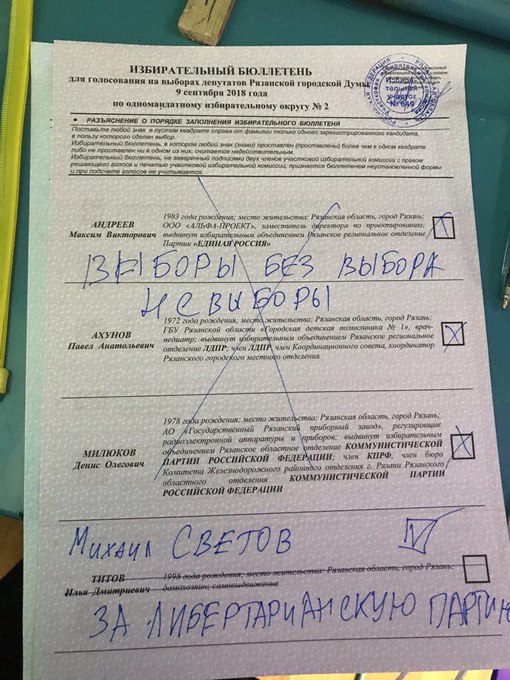 ИЗБИРАТЕЛЬНЫЙ БЮЛЛЕТЕНЬ
для голосования на выборах депутатов Рязанской городской Думы
9 сентября 2018 года
по одномандатному избирательному округу № 2
РАЗЪЯСНЕНИЕ О ПОРЯДКЕ ЗАПОЛНЕНИЯ ИЗБИРАТЕЛЬНОГО БЮЛЛЕТЕНЯ
Поставьте любой знак в пустом квадрате справа от фамилии только одного зарегистрированного кандидата,
в пользу которого сделан выбор.
Избирательный бюллетень, в котором любой знак (знаки) проставлен (проставлены) более чем в одном квадрате
либо не проставлен ни в одном из них, считается недействительным.
Избирательный бюллетень, не заверенный подписями двух членов участковой избирательной комиссии с правом
решающего голоса и печатью участковой избирательной комиссии, признается бюллетенем неустановленной формы
и при подсчете голосов не учитывается.
Избира-
тельный
участок
№ 945
АНДРЕЕВ
Максим Викторович
1983 года рождения; место жительства: Рязанская область, город Рязань;
ООО «АЛЬФА-ПРОЕКТ», заместитель директора по проектированию;
выдвинут избирательным объединением Рязанское региональное отделение
Партии «ЕДИНАЯ РОССИЯ»
ВЫБОРЫ БЕЗ ВЫБОРА
НЕ ВЫБОРЫ
АХУНОВ
Павел Анатольевич
1972 года рождения; место жительства: Рязанская область, город Рязань;
ГБУ Рязанской области «Городская детская поликлиника № 1», врач-
педиатр; выдвинут избирательным объединением Рязанское региональное
отделение ЛДПР; член ЛДПР, член Координационного совета, координатор
Рязанского городского местного отделения
МИЛЮКОВ
Денис Олегович
1978 года рождения; место жительства: Рязанская область, город Рязань;
АО «Государственный Рязанский приборный завод», регулировщик
радиоэлектронной аппаратуры и приборов; выдвинут избирательным
объединением Рязанское областное отделение КОММУНИСТИЧЕСКОЙ
ПАРТИИ РОССИЙСКОЙ ФЕДЕРАЦИИ; член КПРФ, член бюро
Комитета Железнодорожного районного отделения г. Рязани Рязанского
областного отделения КОММУНИСТИЧЕСКОЙ ПАРТИИ
РОССИЙСКОЙ ФЕДЕРАЦИИ
МИХАИЛ СВЕТОВ
ТИТОВ
Илья Дмитриевич
1998 года рождения; место жительства: Рязанская область, город Рязань;
домохозяин; самовыдвижение
ЗА ЛИБЕРТАРИАНСКУЮ ПАРТИЮ